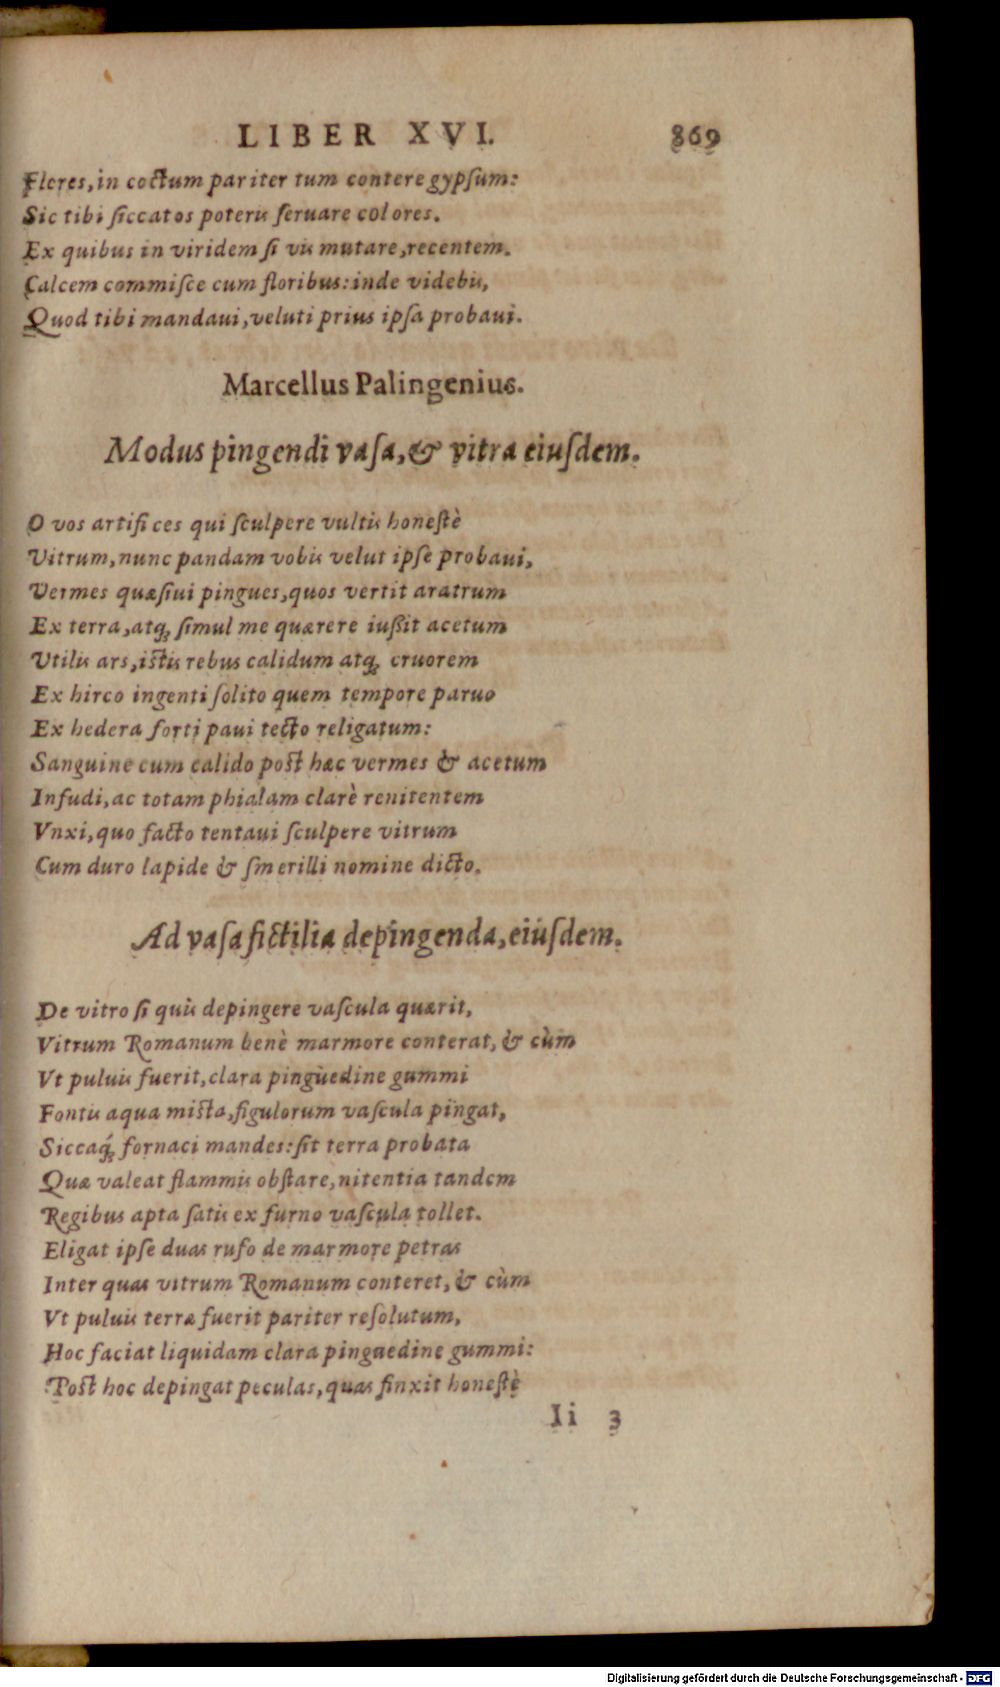 LIBER XVI. 869
Flores, in coctum pariter tum contere gypſum:
Sic tibi ſiccatos poteris ſeruare colores.
Ex quibus in viridem ſi vis mutare, recentem.
Calcem commiſce cum floribus: inde videbis,
Quod tibi mandaui, veluti prius ipſa probaui.
Marcellus Palingenius.
Modus pingendi vaſa, & vitra eiuſdem.
O vos artifices qui ſculpere vultis honeſtè
Vitrum, nunc pandam vobis velut ipſe probaui,
Vermes quæſiui pingues, quos vertit aratrum
Ex terra, atq; ſimul me quærere iußit acetum
Vtilis ars, iſtis rebus calidum atq; cruorem
Ex hirco ingenti ſolito quem tempore paruo
Ex hedera forti paui tecto religatum:
Sanguine cum calido poſt hæc vermes & acetum
Infudi, ac totam phialam clarè renitentem
Vnxi, quo facto tentaui ſculpere vitrum
Cum duro lapide & ſmerilli nomine dicto.
Ad vaſa fictilia depingenda, eiuſdem.
De vitro ſi quis depingere vaſcula quærit,
Vitrum Romanum benè marmore conterat, & cùm
Vt puluis fuerit, clara pinguedine gummi
Fontis aqua miſta, figulorum vaſcula pingat,
Siccaq́; fornaci mandes: ſit terra probata
Quæ valeat flammis obſtare, nitentia tandem
Regibus apta ſatis ex furno vaſcula tollet.
Eligat ipſe duas rufo de marmore petras
Inter quas vitrum Romanum conteret, & cùm
Vt puluis terræ fuerit pariter reſolutum,
Hoc faciat liquidam clara pinguedine gummi:
Poſt hoc depingat peculas, quas finxit honeſtè
Ii 3
Digitalisierung gefördert durch die Deutsche Forschungsgemeinschaft - DFG